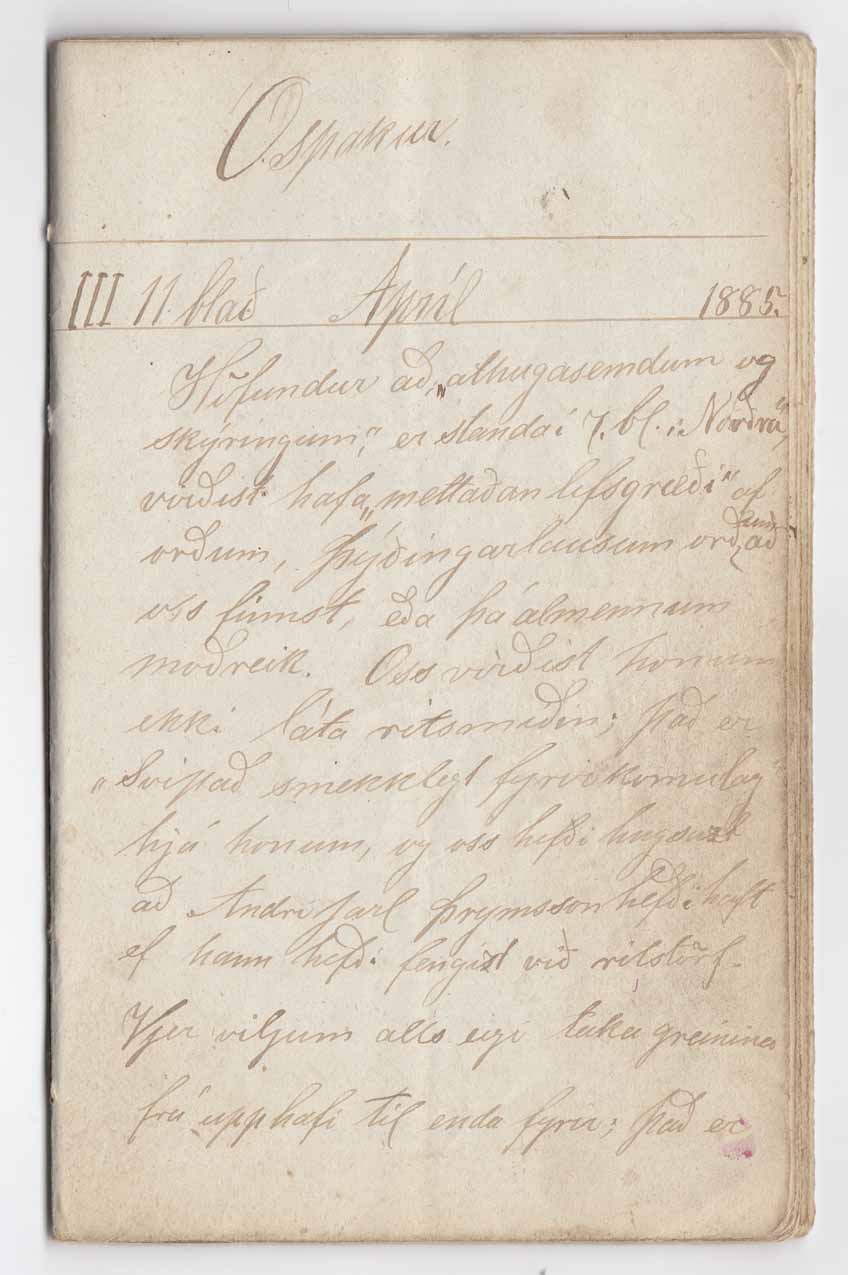 Óspakur.
III 11 blað Apríl 1885.
Höfundur að „athugasemdum og
skýringum," er standa í 7. bl. „Norðra",
virðist hafa „mettaðan lífsgæði" af
orðum, þýðingarlausum orðum að
oss finnst, eða þá almennum
moðreik. Oss virðist honum
ekki láta ritsmíðin; það er
„Svipað smekklegt fyrirkomulag"
hjá honum, og oss hefði hugsast
að Andri jarl Þrymsson hefði haft
ef hann hefði fengist við ritstörf.
Vjer viljum alls eigi taka greinina
frá upphafi til enda fyrir; það er